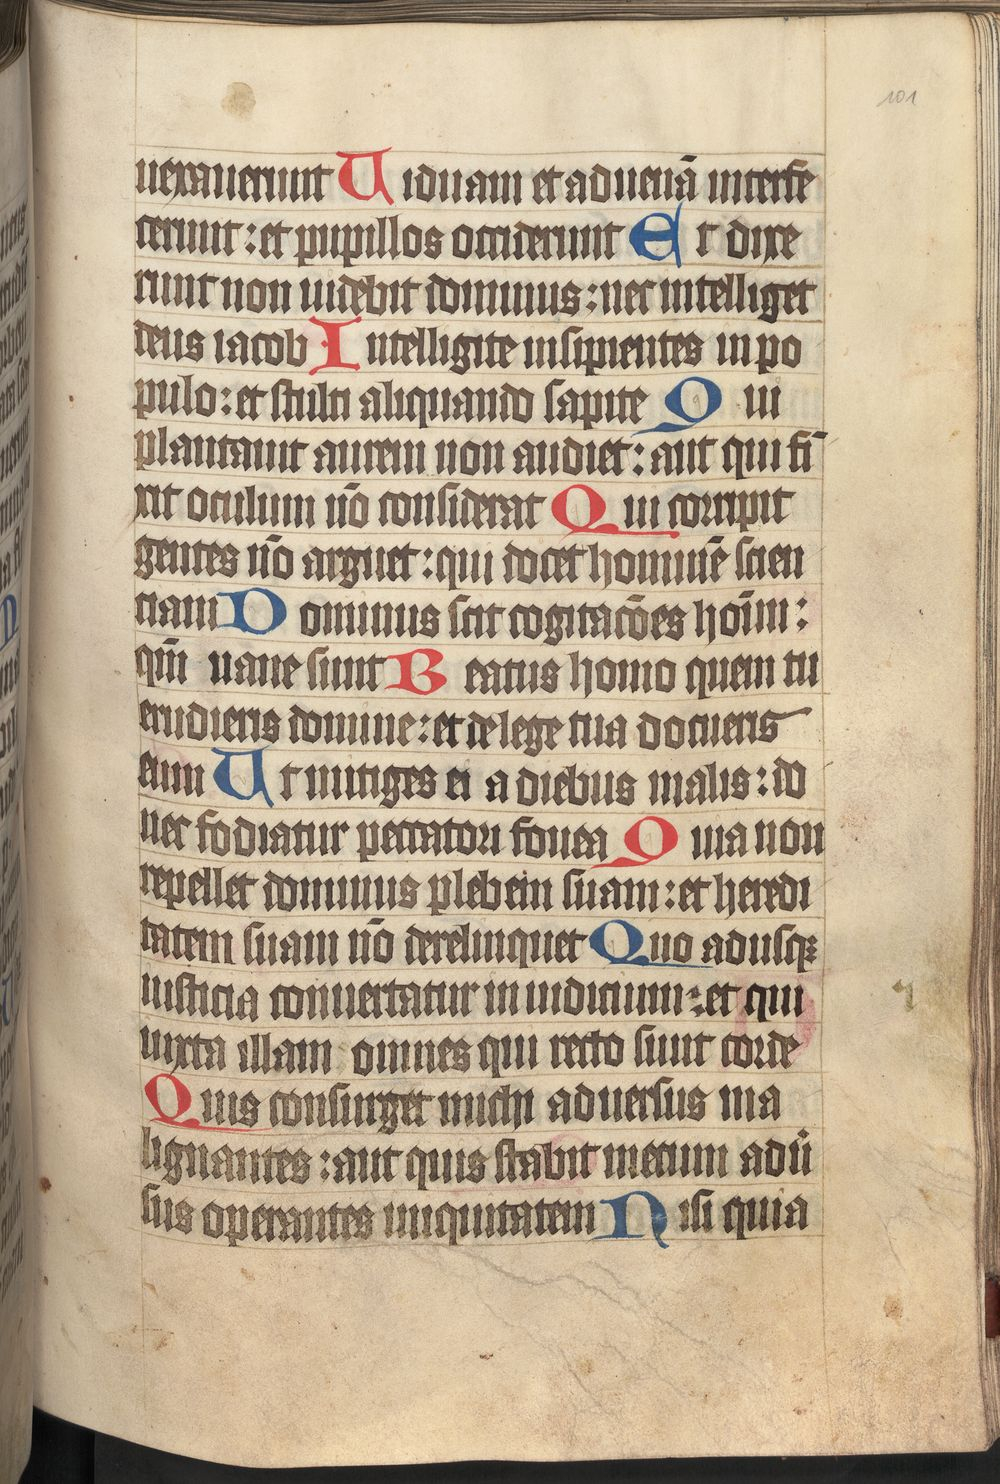 101
uexauerunt Uiduam et aduenā interfe
cerunt : et pupillos occiderunt Et dixe
runt non uidebit dominus : nec intelliget
deus iacob Intelligite insipientes in po
pulo : et stulti aliquando sapite Qui
plantauit aurem non audiet : aut qui fi̅
xit oculum nō considerat Qui corripit
gentes nō arguet : qui docet hominē scien
ciam Dominus scit cogitacōes hoīm :
qm̄ uane sunt Beatus homo quem tu
erudieris domine : et de lege tua docueris
eum Ut mitiges ei a diebus malis : do
nec fodiatur peccatori fouea Quia non
repellet dominus plebem suam : et heredi
tatem suam nō derelinquet Quo adusqꝫ
iusticia conuertatur in iudicium : et qui
iuxta illam omnes qui recto sunt corde
Quis consurget michi aduersus ma
lignantes : aut quis stabit mecum adu̅
sus operantes iniquitatem Nisi quia